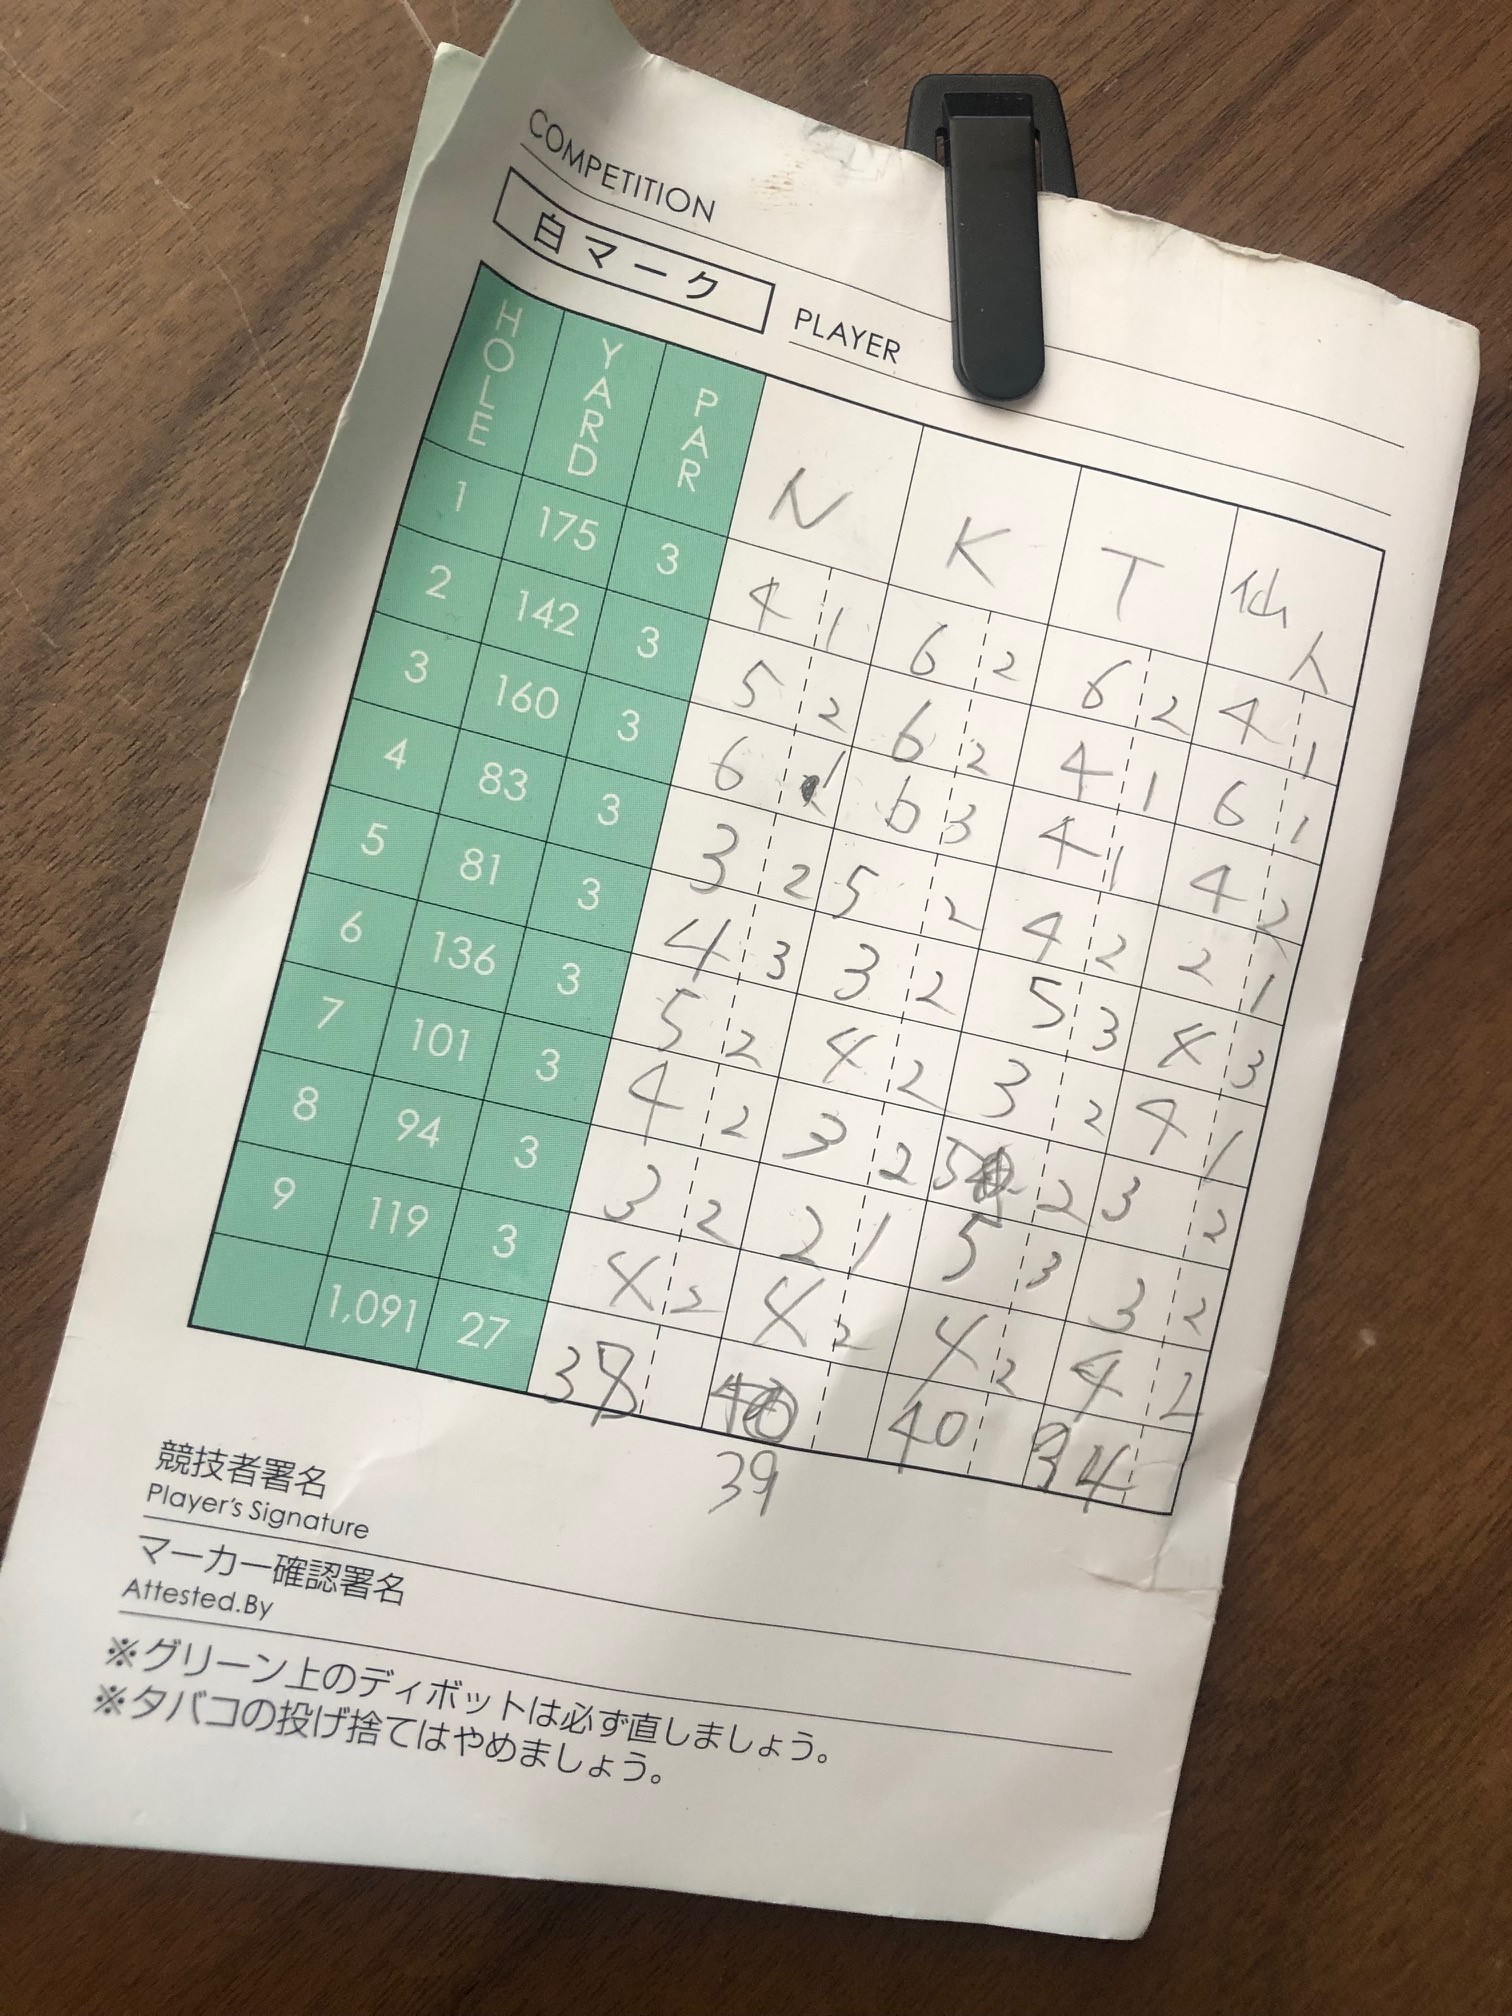 COMPETITION
白マーク PLAYER
HOLE YARD PAR N K T 仙人
1 175 3 4 1 6 2 6 2 4 1
2 142 3 5 2 6 2 4 1 6 1
3 160 3 6 1 6 3 4 1 4 2
4 83 3 3 2 5 2 4 2 2 1
5 81 3 4 3 3 2 5 3 4 3
6 136 3 5 2 4 2 3 2 4 1
7 101 3 4 2 3 2 5 2 3 2
8 94 3 3 2 2 1 5 3 3 2
9 119 3 4 2 4 2 4 2 4 2
1,091 27 38 40 34
39
競技者署名
Player's Signature
マーカー確認署名
Attested.By
※グリーン上のディボットは必ず直しましょう。
※タバコの投げ捨てはやめましょう。